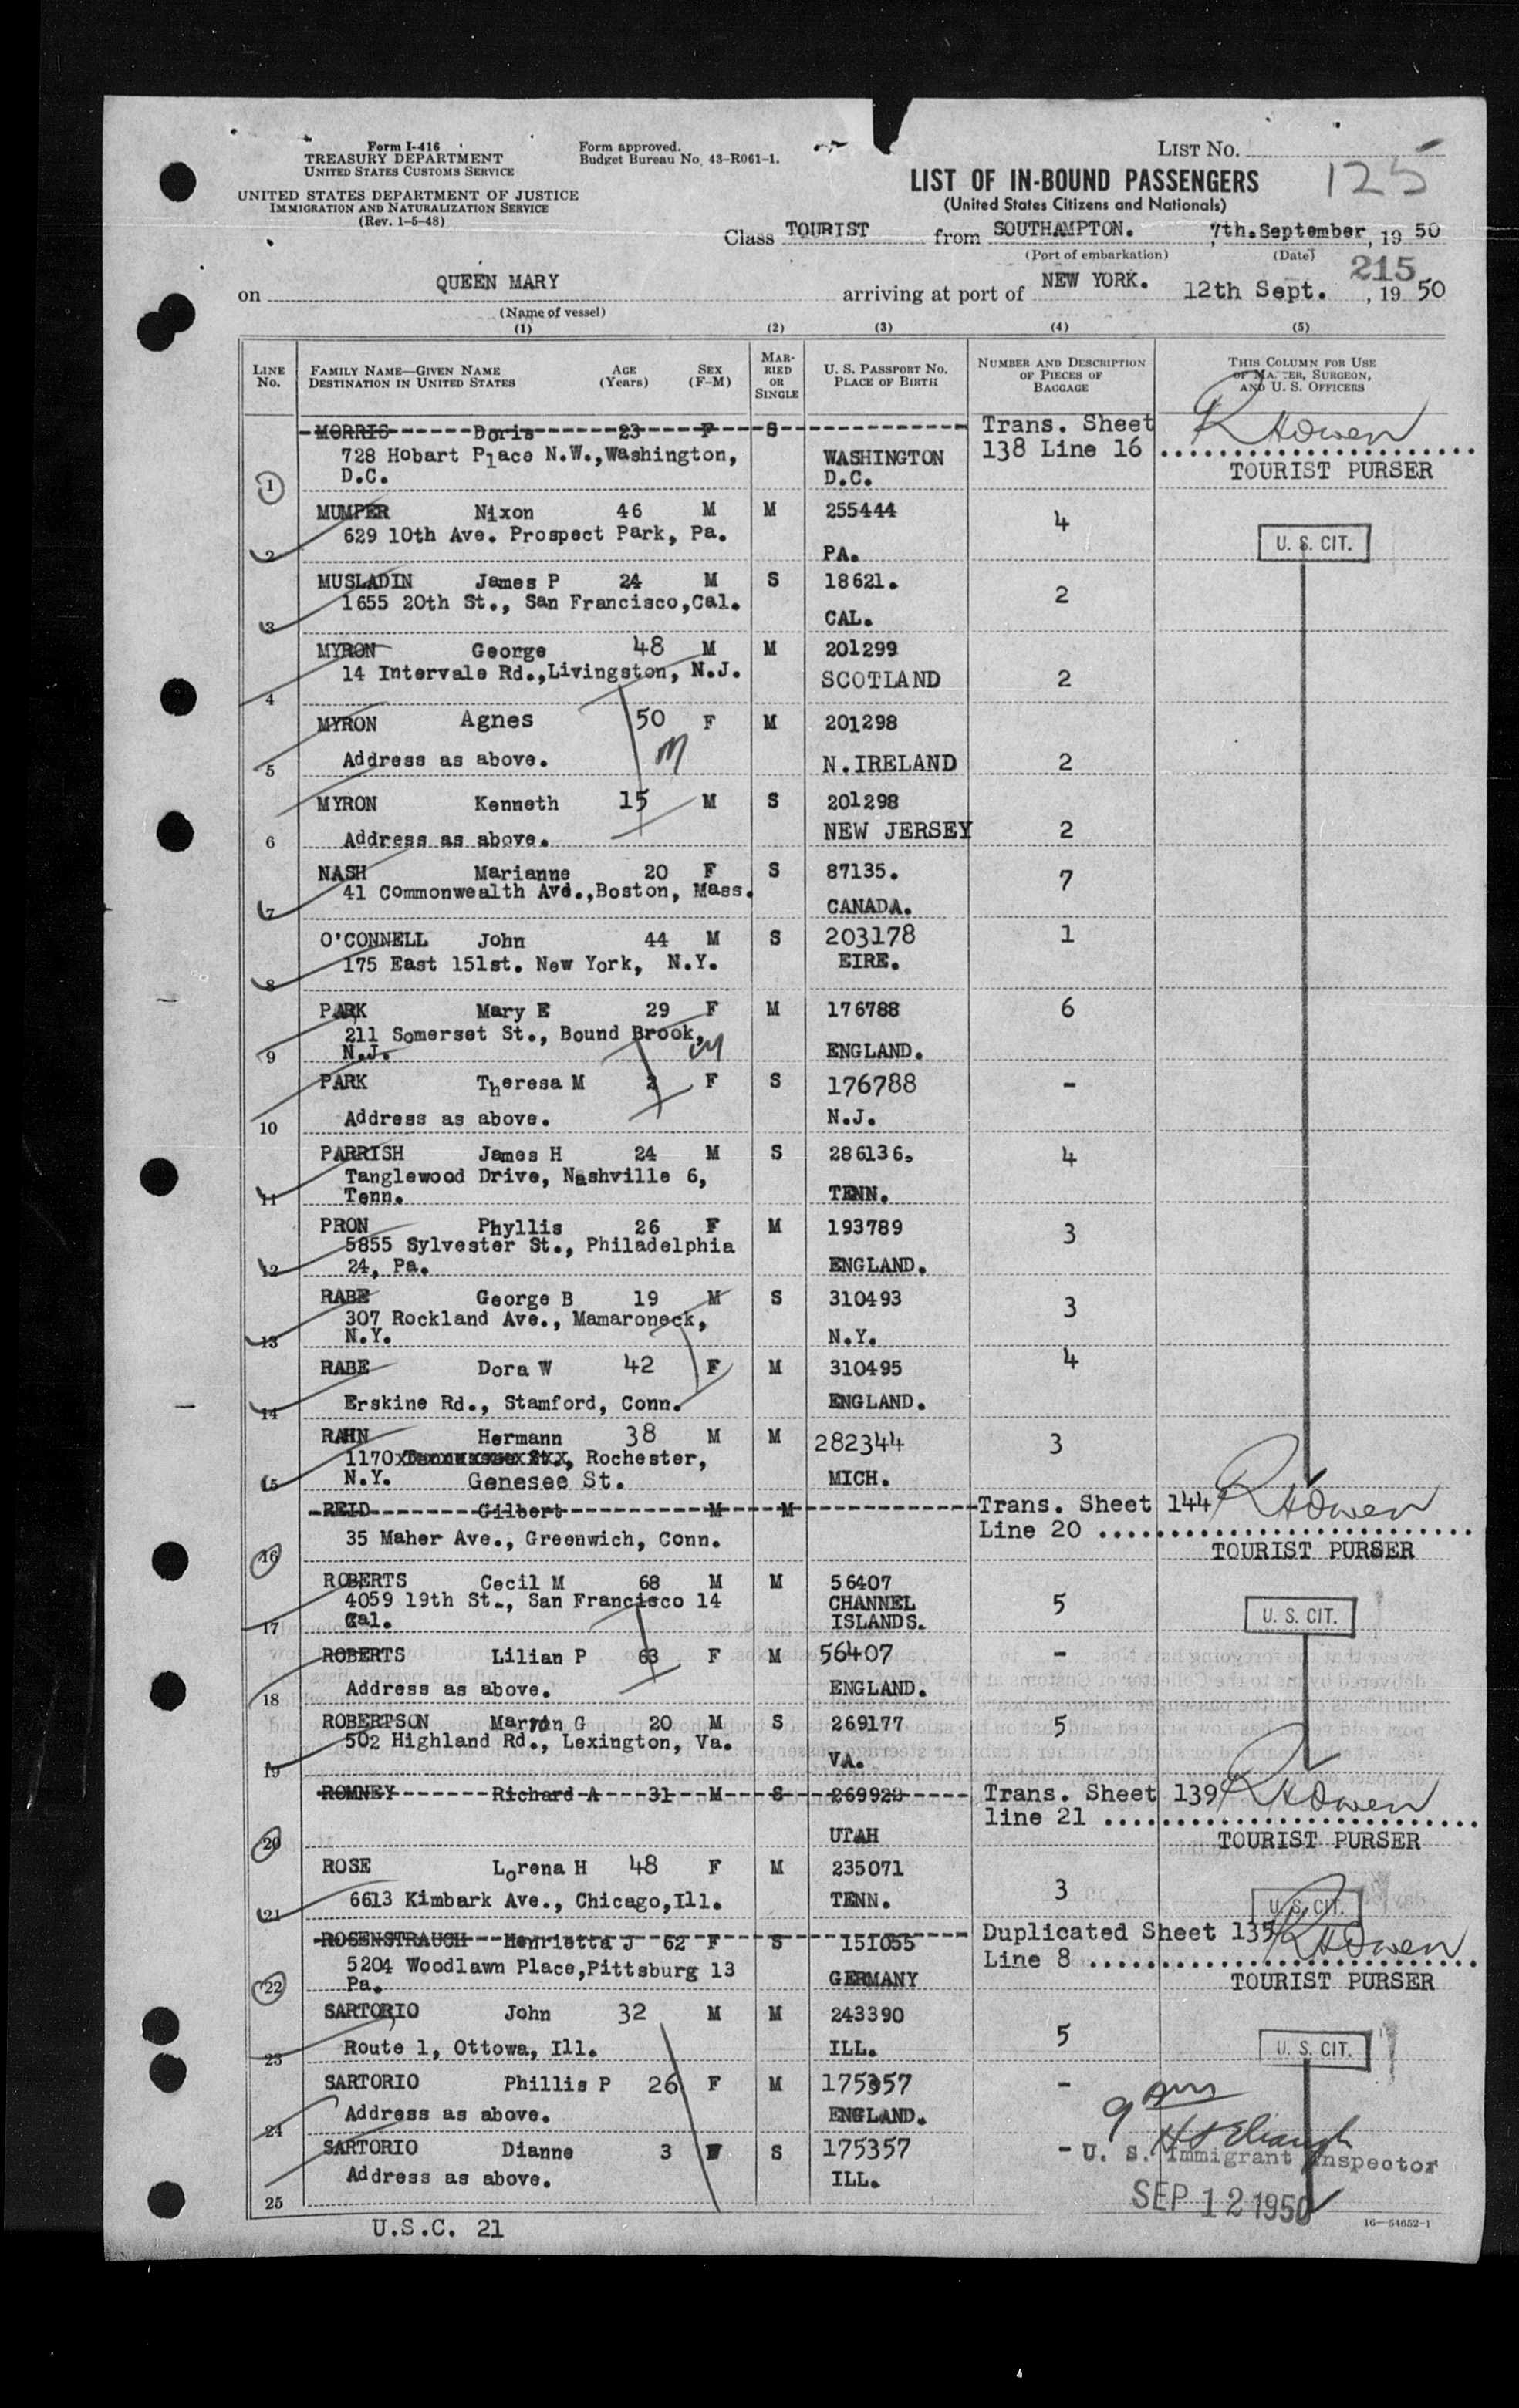 Form I-416
TREASURY DEPARTMENT
UNITED STATES CUSTOMS SERVICE
UNITED STATES DEPARTMENT OF JUSTICE
IMMIGRATION AND NATURALIZATION SERVICE
(Rev. 1-5-48)
Form approved.
Budget Bureau No. 43-R061-1.
LIST NO.
125
LIST OF IN-BOUND PASSENGERS
(United States Citizens and Nationals)
Class TOURIST from SOUTHAMPTON. 7th.September, 19 50
(Port of embarkation) (Date)
215
on QUEEN MARY arriving at port of NEW YORK. 12th Sept. , 19 50
(Name of vessel)
(1) (2) (3) (4) (5)
LINE NO. FAMILY NAME—GIVEN NAME DESTINATION IN UNITED STATES AGE (Years) SEX (F-M) MARRIED OR SINGLE U. S. PASSPORT NO. PLACE OF BIRTH NUMBER AND DESCRIPTION OF PIECES OF BAGGAGE THIS COLUMN FOR USE OF MASTER, SURGEON, AND U. S. OFFICERS
MORRIS Doris 23 F S Trans. Sheet RHOwen
728 Hobart Place N.W.,Washington, WASHINGTON 138 Line 16
1 D.C. D.C. TOURIST PURSER
MUMPER Nixon 46 M M 255444 4
629 10th Ave. Prospect Park, Pa. U. S. CIT.
2 PA.
MUSLADIN James P 24 M S 18621. 2
1655 20th St., San Francisco,Cal.
3 CAL.
MYRON George 48 M M 201299
14 Intervale Rd.,Livingston, N.J. SCOTLAND 2
4
MYRON Agnes 50 F M 201298
5 Address as above. N.IRELAND 2
MYRON Kenneth 15 M S 201298
6 Address as above. NEW JERSEY 2
NASH Marianne 20 F S 87135. 7
41 Commonwealth Ave.,Boston, Mass.
7 CANADA.
O'CONNELL John 44 M S 203178 1
175 East 151st. New York, N.Y. EIRE.
8
PARK Mary E 29 F M 176788 6
211 Somerset St., Bound Brook,
9 N.J. ENGLAND.
PARK Theresa M 2 F S 176788 -
10 Address as above. N.J.
PARRISH James H 24 M S 286136. 4
Tanglewood Drive, Nashville 6,
11 Tenn. TENN.
PRON Phyllis 26 F M 193789 3
5855 Sylvester St., Philadelphia
12 24, Pa. ENGLAND.
RABE George B 19 M S 310493 3
307 Rockland Ave., Mamaroneck,
13 N.Y. N.Y.
RABE Dora W 42 F M 310495 4
14 Erskine Rd., Stamford, Conn. ENGLAND.
RAHN Hermann 38 M M 282344 3
1170 , Rochester,
15 N.Y. Genesee St. MICH.
REID Gilbert M M Trans. Sheet 144 RHOwen
35 Maher Ave., Greenwich, Conn. Line 20
16 TOURIST PURSER
ROBERTS Cecil M 68 M M 56407 5
4059 19th St., San Francisco 14 CHANNEL U. S. CIT.
17 Cal. ISLANDS.
ROBERTS Lilian P 63 F M 56407 -
18 Address as above. ENGLAND.
ROBERTSON Martin G 20 M S 269177 5
502 Highland Rd., Lexington, Va.
19 VA.
ROMNEY Richard A 31 M S Trans. Sheet 139 RHOwen
line 21
20 UTAH TOURIST PURSER
ROSE Lorena H 48 F M 235071 3
21 6613 Kimbark Ave., Chicago,Ill. TENN. U. S. CIT.
ROSENSTRAUCH Henrietta J 62 F S 151055 Duplicated Sheet 135 RHOwen
5204 Woodlawn Place,Pittsburg 13 Line 8
22 Pa. GERMANY TOURIST PURSER
SARTORIO John 32 M M 243390 5
23 Route 1, Ottowa, Ill. ILL. U. S. CIT.
SARTORIO Phillis P 26 F M 175357 -
24 Address as above. ENGLAND.
SARTORIO Dianne 3 F S 175357 -
U. S. Immigrant Inspector
Address as above. ILL.
25 SEP 12 1950
U.S.C. 21 16—54652-1